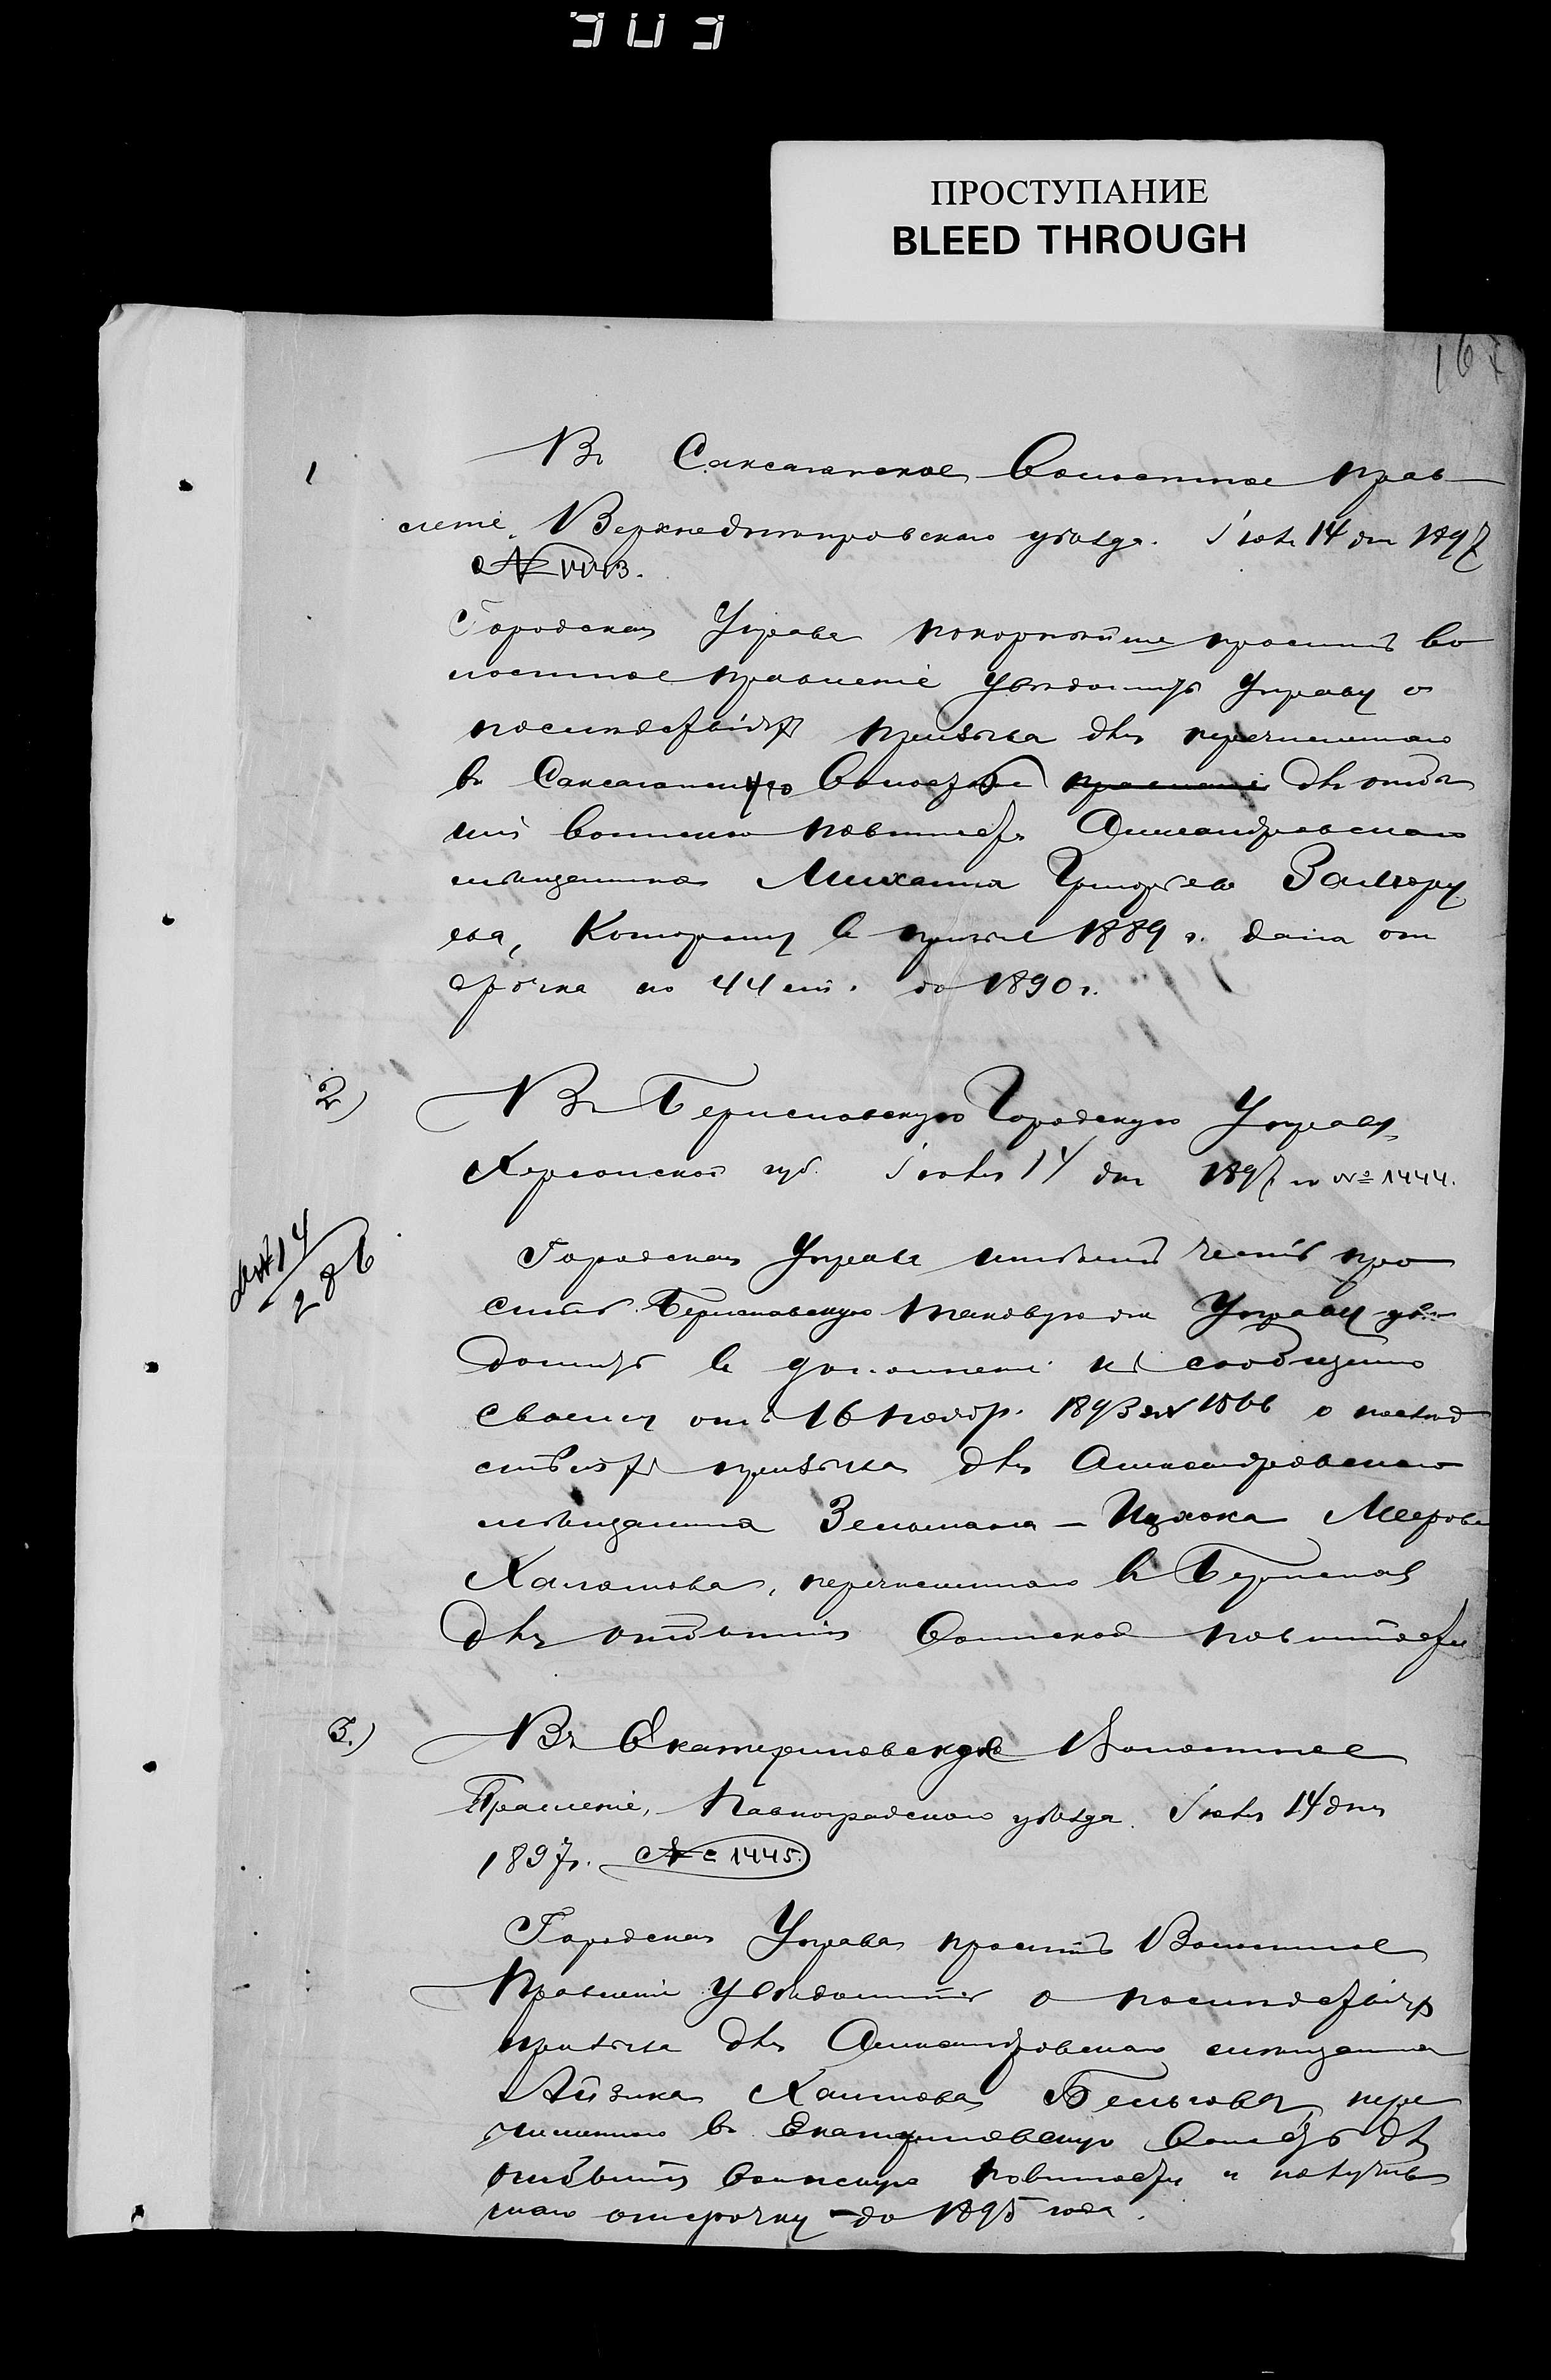 303
ПРОСТУПАНИЕ
BLEED THROUGH
167
1
Въ Саксаганское Волостное Прав
леніе, Верхнеднѣпровскаго уѣзда. Іюля 14 дня 1897
№ 1443.
Городская Управа покорнѣйше проситъ Во
лостное Правленіе увѣдомить Управу о
послѣдствіяхъ призыва для перечисленнаго
въ Саксаганскую Волость правленіе для отбы
тія воинской повинности Александровскаго
мѣщанина Михаила Григорьева
которому въ призывъ 1889 г. дана от
срочка по 44 ст. до 1890 г.
2)
Въ Бериславскую Городскую Управу,
Херсонской губ. Іюля 14 дня 1897 г. № 1444.
14
286
Городская Управа имѣетъ честь про
сить Бериславскую таковую же Управу увѣ
домить въ дополненіе къ сообщенію
своему отъ 16 ноябр. 1893 за № 1566 о послѣд
ствіяхъ призыва для Александровскаго
мѣщанина Зельмана-Ицхока Меерова
перечисленнаго въ Бериславъ
для отбытія воинской повинности
3.)
Въ Екатериновское Волостное
Правленіе, Павлоградскаго уѣзда. Іюля 14 дня
1897 г. № 1445.
Городская Управа проситъ Волостное
Правленіе увѣдомить о послѣдствіяхъ
призыва для Александровскаго мѣщанина
Айзика Хаимова перe
численнаго въ Екатериновскую волость для
отбытія воинскую повинности и получив
шаго отсрочку до 1895 года.